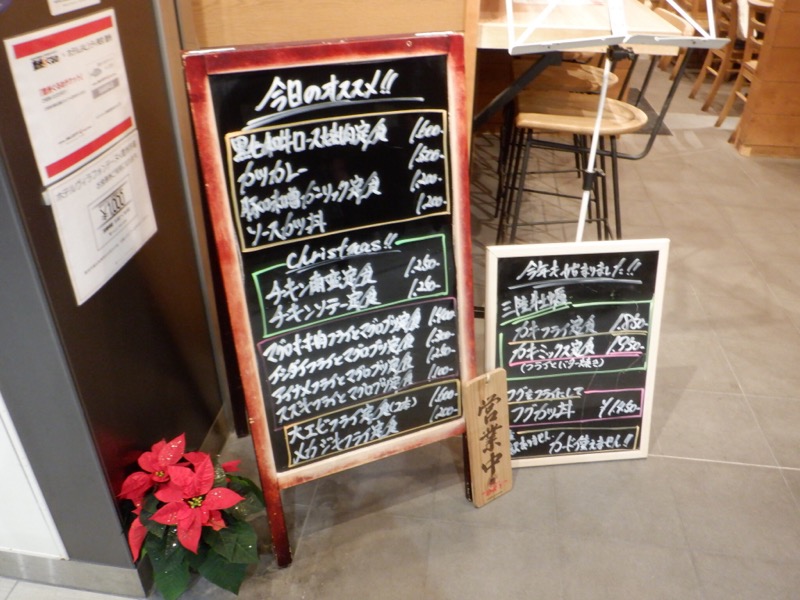 今日のオススメ!!
黒七味牛ロース焼肉定食 1,600-
カツカレー 1,500-
豚の味噌ガーリック定食 1,200-
ソースカツ丼 1,200-
Christmas!!
チキン南蛮定食 1,250-
チキンソテー定食 1,250-
マグロホホ肉フライとマグロブツ定食 1,400-
チダイフライとマグロブツ定食 1,300-
アイナメフライとマグロブツ定食 1,250-
スズキフライとマグロブツ定食 1,100-
大エビフライ定食(2本) 1,600-
メカジキフライ定食 1,200-
営業中
今年も始まりました!!
三陸牡蠣
カキフライ定食 1,850-
カキミックス定食 1,950-
(フライとバター焼き)
フグをフライにして
フグカツ丼 ¥1,450-
カード使えません!!
¥1,000